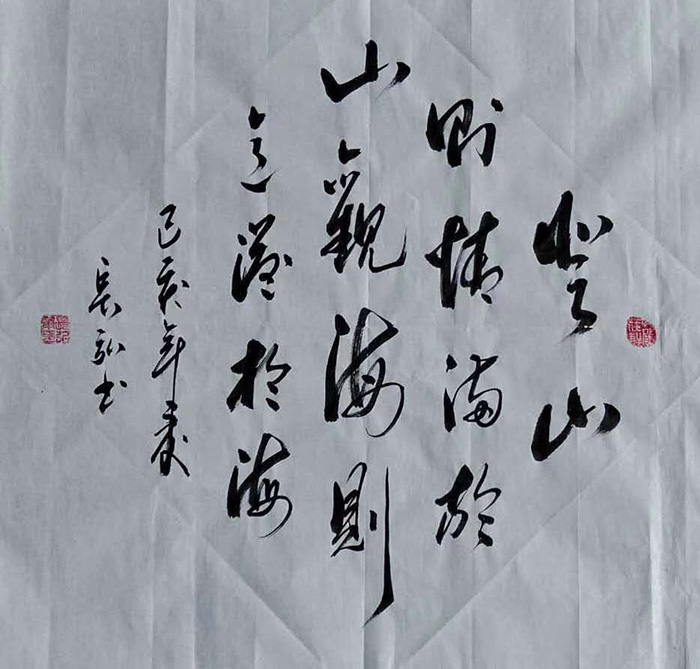 登山
則情滿於
山觀海則
意溢於海
己亥年秋
吳弘書